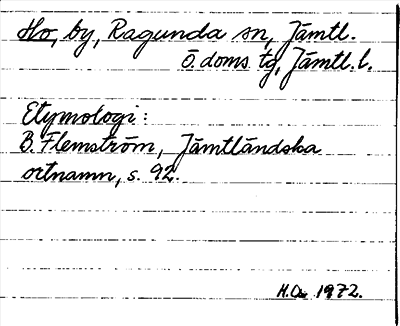 Ho, by, Ragunda sn, Jämtl.
Ö. doms. tg, Jämtl. l.
Etymologi:
B. Flemström, Jämtländska
ortnamn, s. 92.
1972.